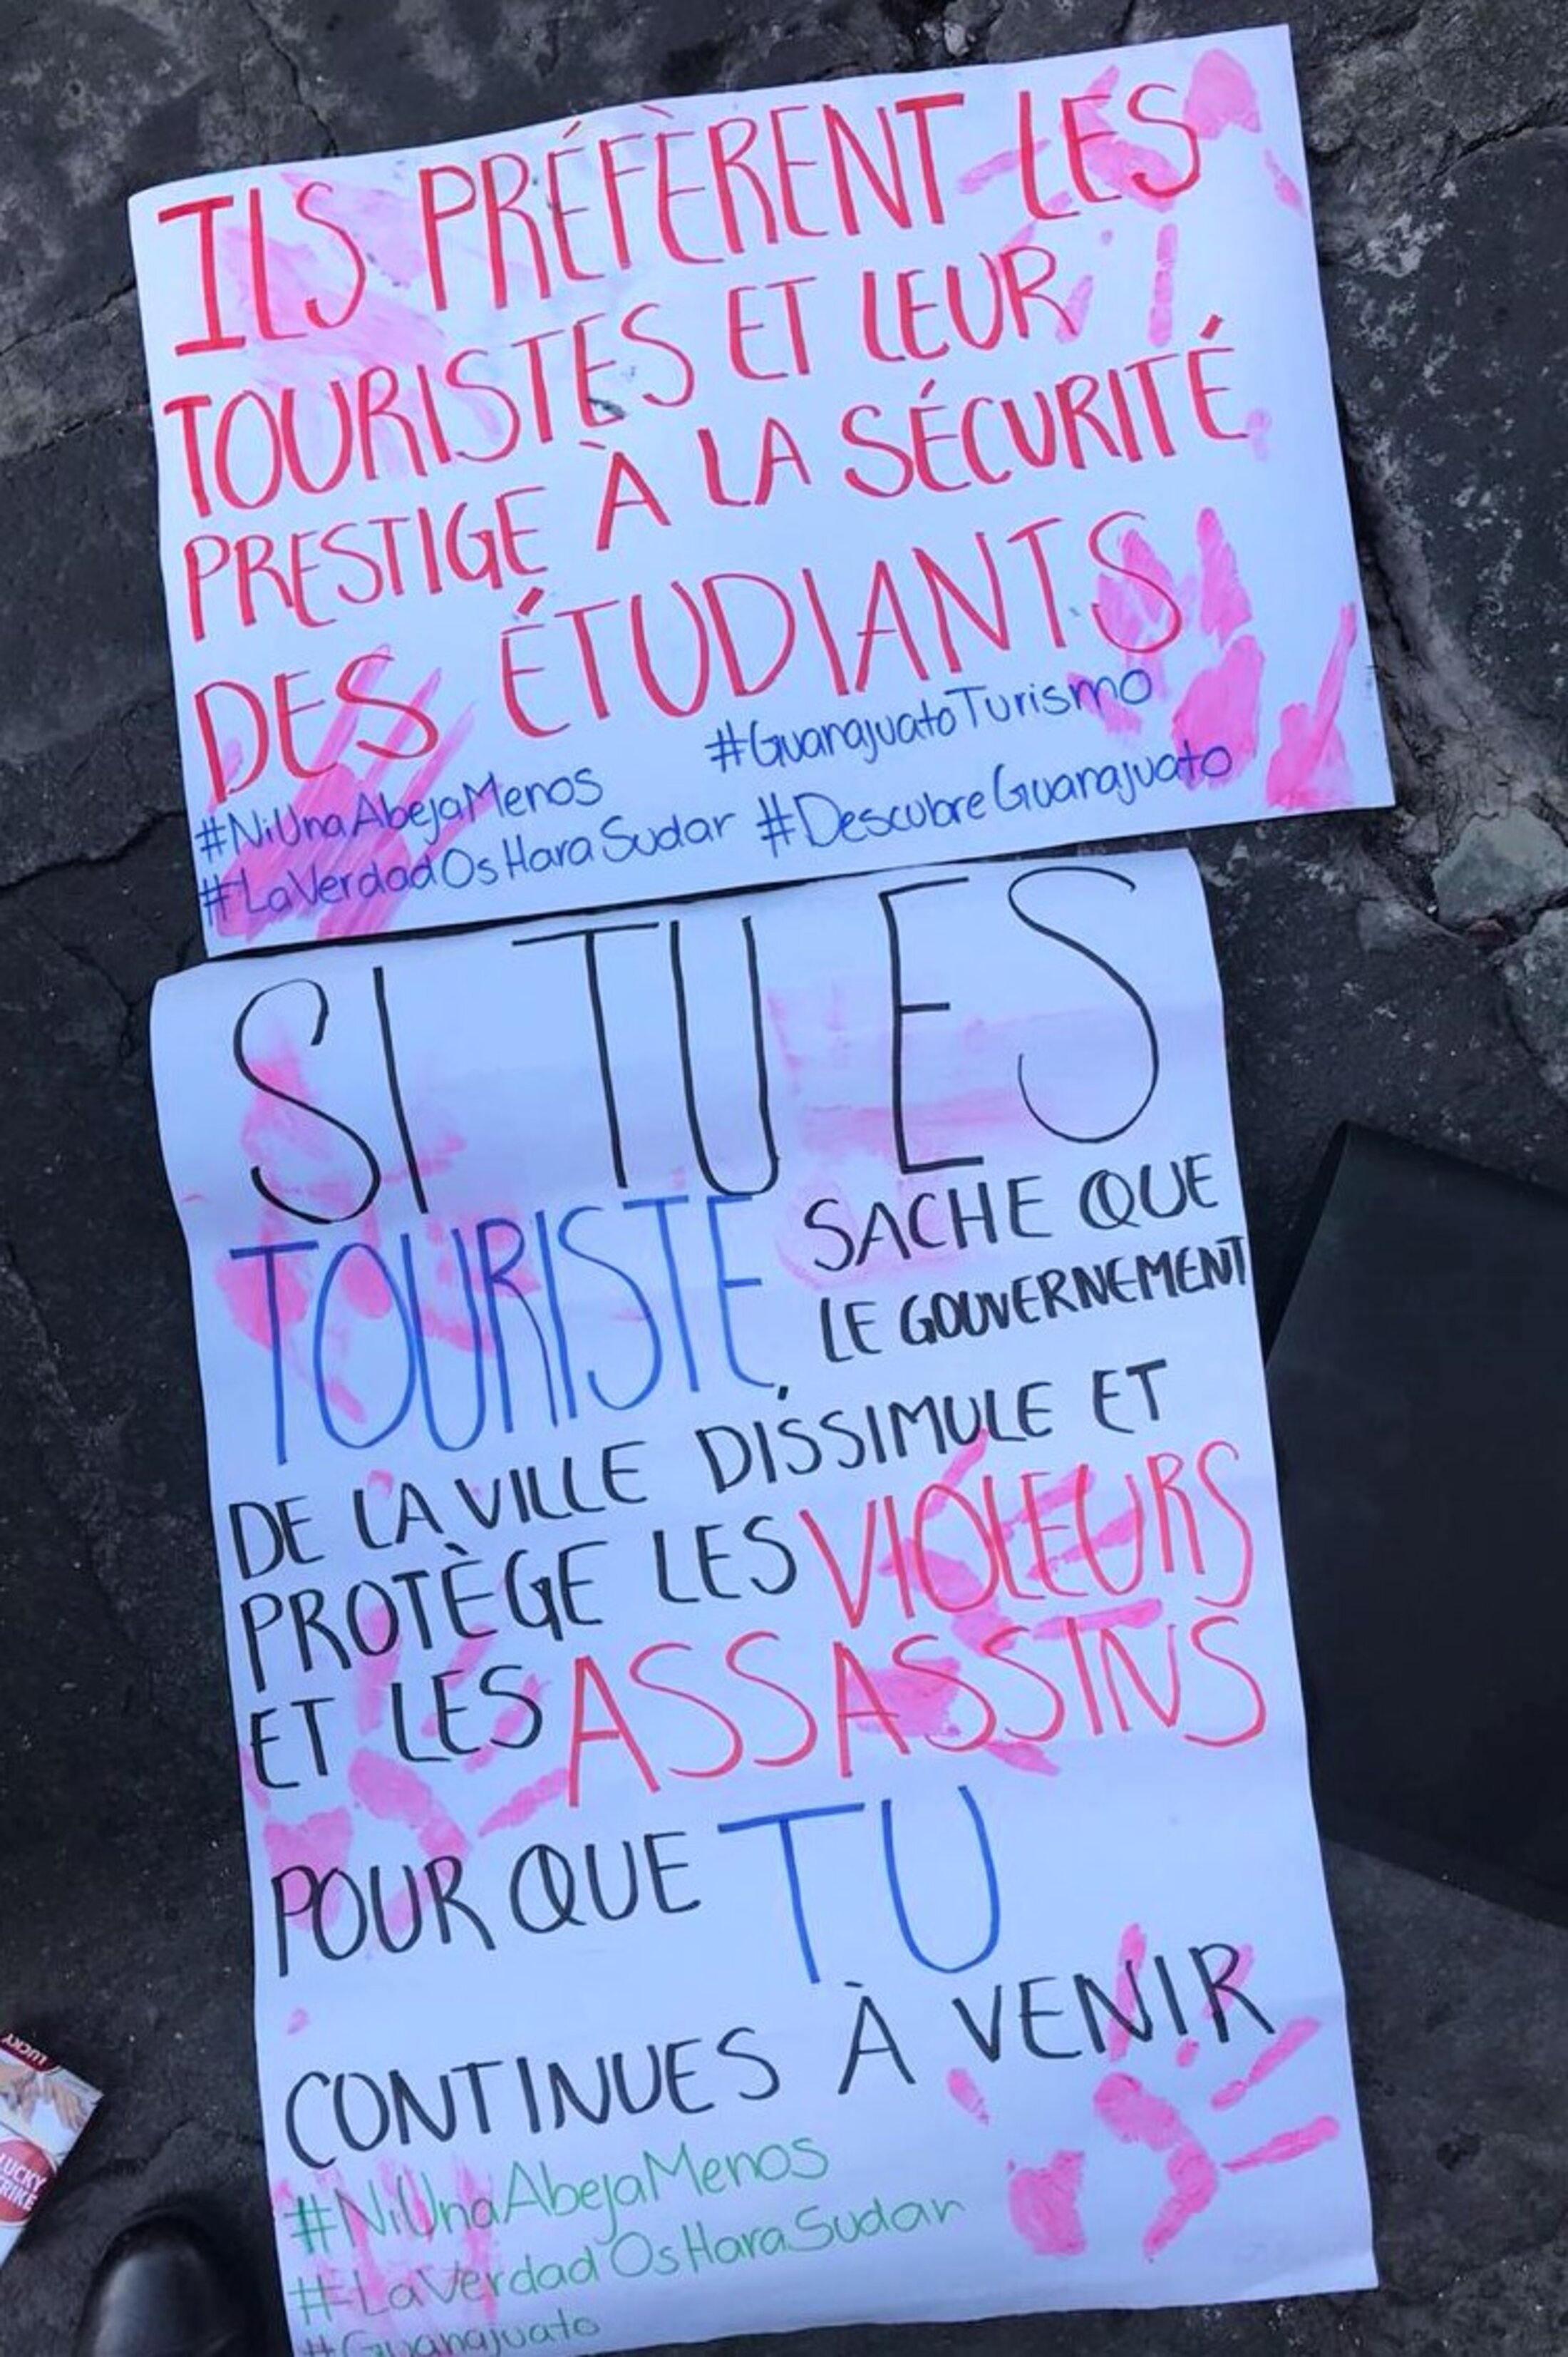 ILS PRÉFÈRENT LES
TOURISTES ET LEUR
PRESTIGE À LA SÉCURITÉ
DES ÉTUDIANTS
#GuanajuatoTurismo
#NiUnaAbejaMenos
#LaVerdadOsHaraSudar #DescubreGuanajuato
SI TU ES
TOURISTE, SACHE QUE
LE GOUVERNEMENT
DE LA VILLE DISSIMULE ET
PROTÈGE LES VIOLEURS
ET LES ASSASSINS
POUR QUE TU
CONTINUES À VENIR
#NiUnaAbejaMenos
#LaVerdadOsHaraSudar
#Guanajuato
LUCKY
LUCKY
STRIKE